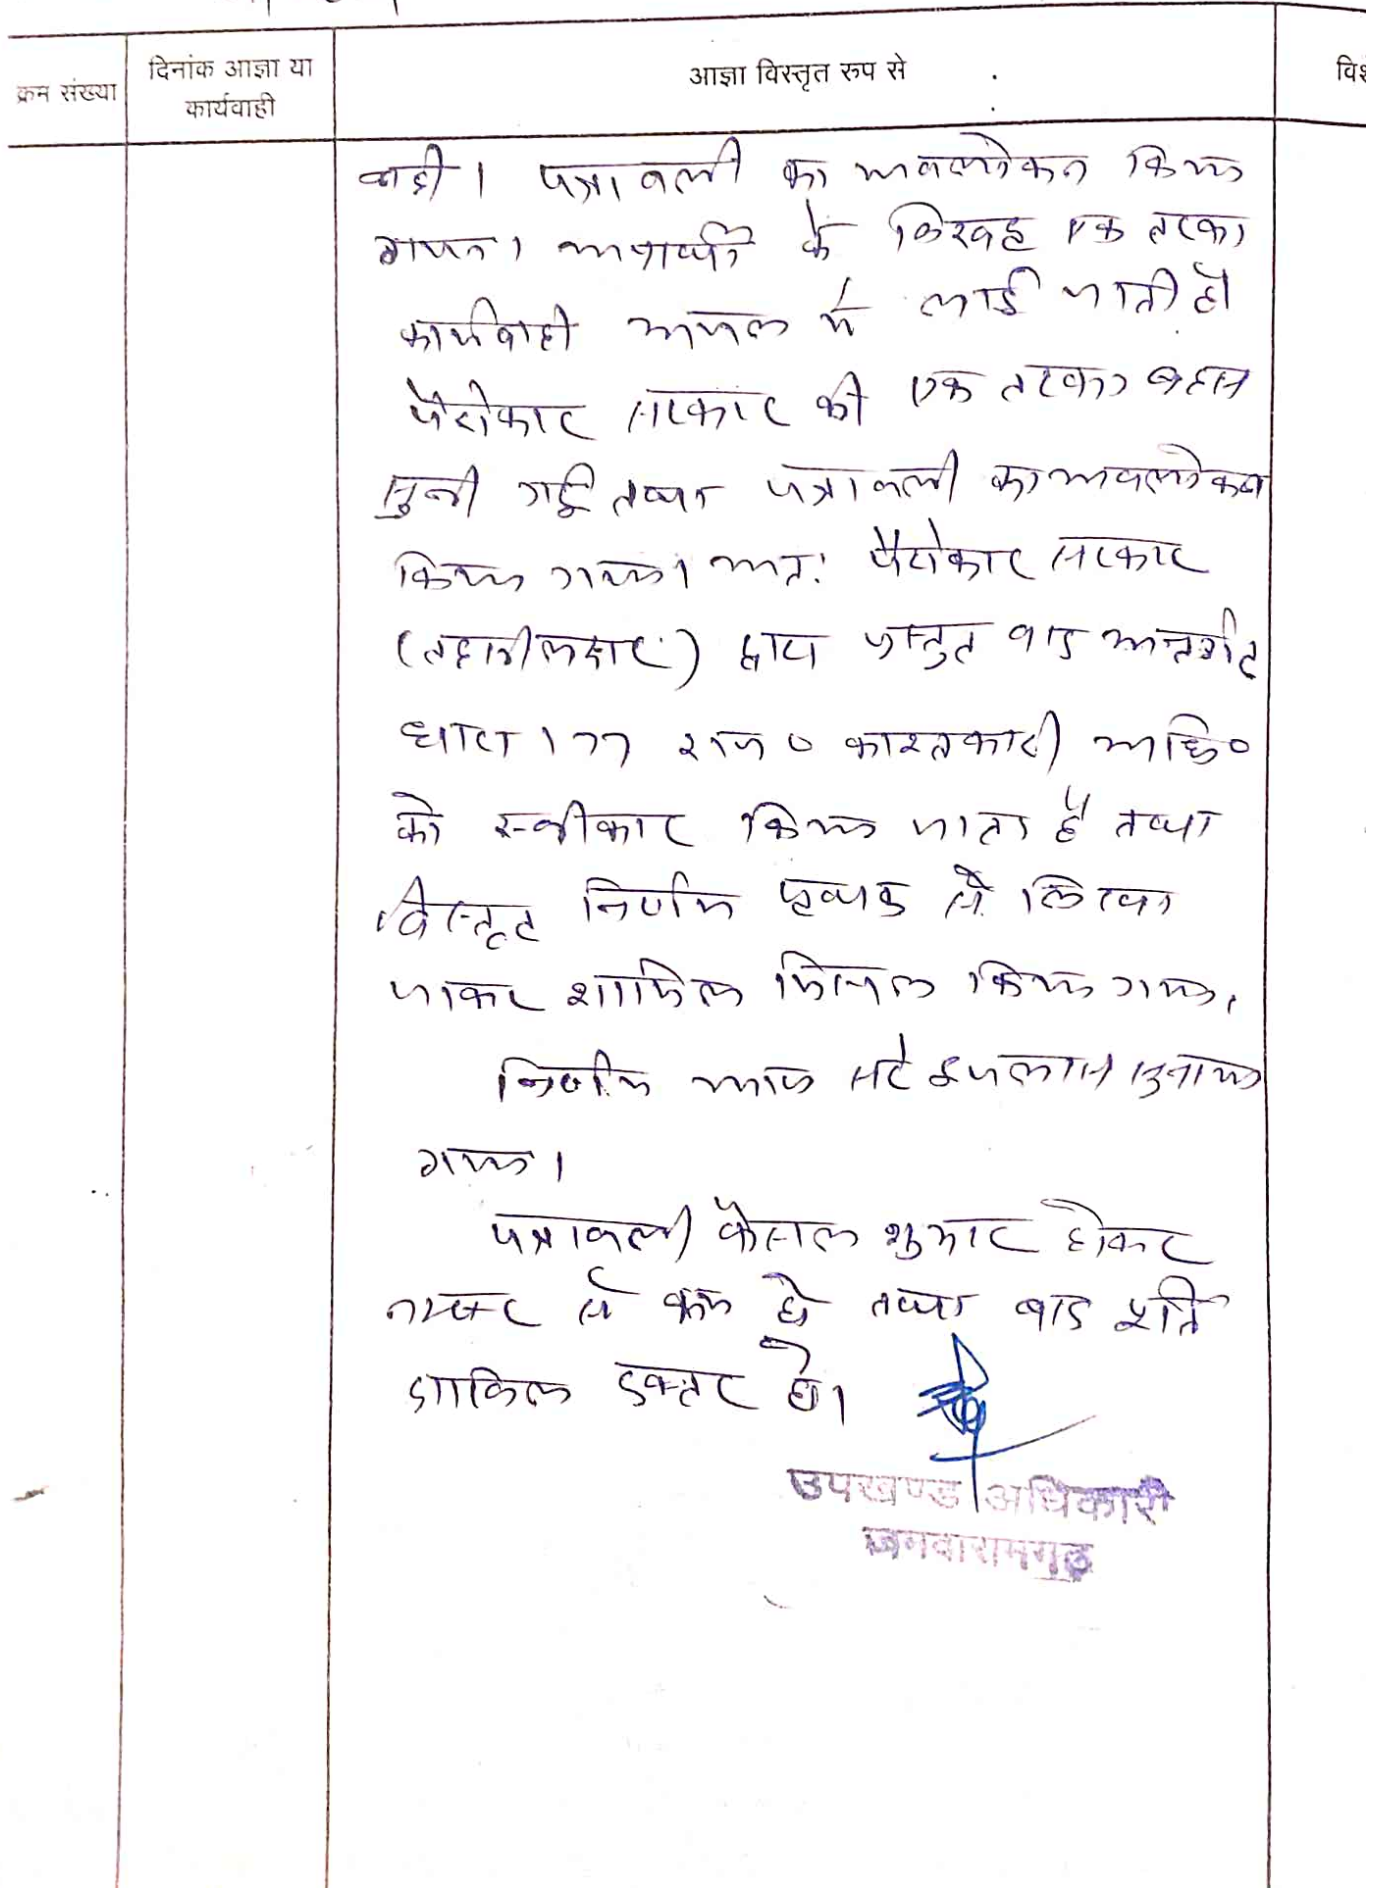 क्रम संख्या
दिनांक आज्ञा या
कार्यवाही
आज्ञा विस्तृत रुप से
विशे
नही। पत्रावली का अवलोकन किया
गया। अप्रार्थी के विरुद्ध एक तरफा
कार्यवाही अमल में लाई जाती है
पैरोकार सरकार की एक तरफा बहस
सुनी गई तथा पत्रावली का अवलोकन
किया गया। अतः पैरोकार सरकार
(तहसीलदार) द्वारा प्रस्तुत वाद अन्तर्गत
धारा 177 राज० काश्तकारी अधि०
को स्वीकार किया जाता है तथा
विस्तृत निर्णय पृथक से लिखा
जाकर शामिल मिसल किया गया।
निर्णय आज सरे इजलास सुनाया
गया।
पत्रावली फैसल शुमार होकर
नम्बर से कम हो तथा बाद पूर्ति
दाखिल दफ्तर हो।
उपखण्ड अधिकारी
जमवारामगढ